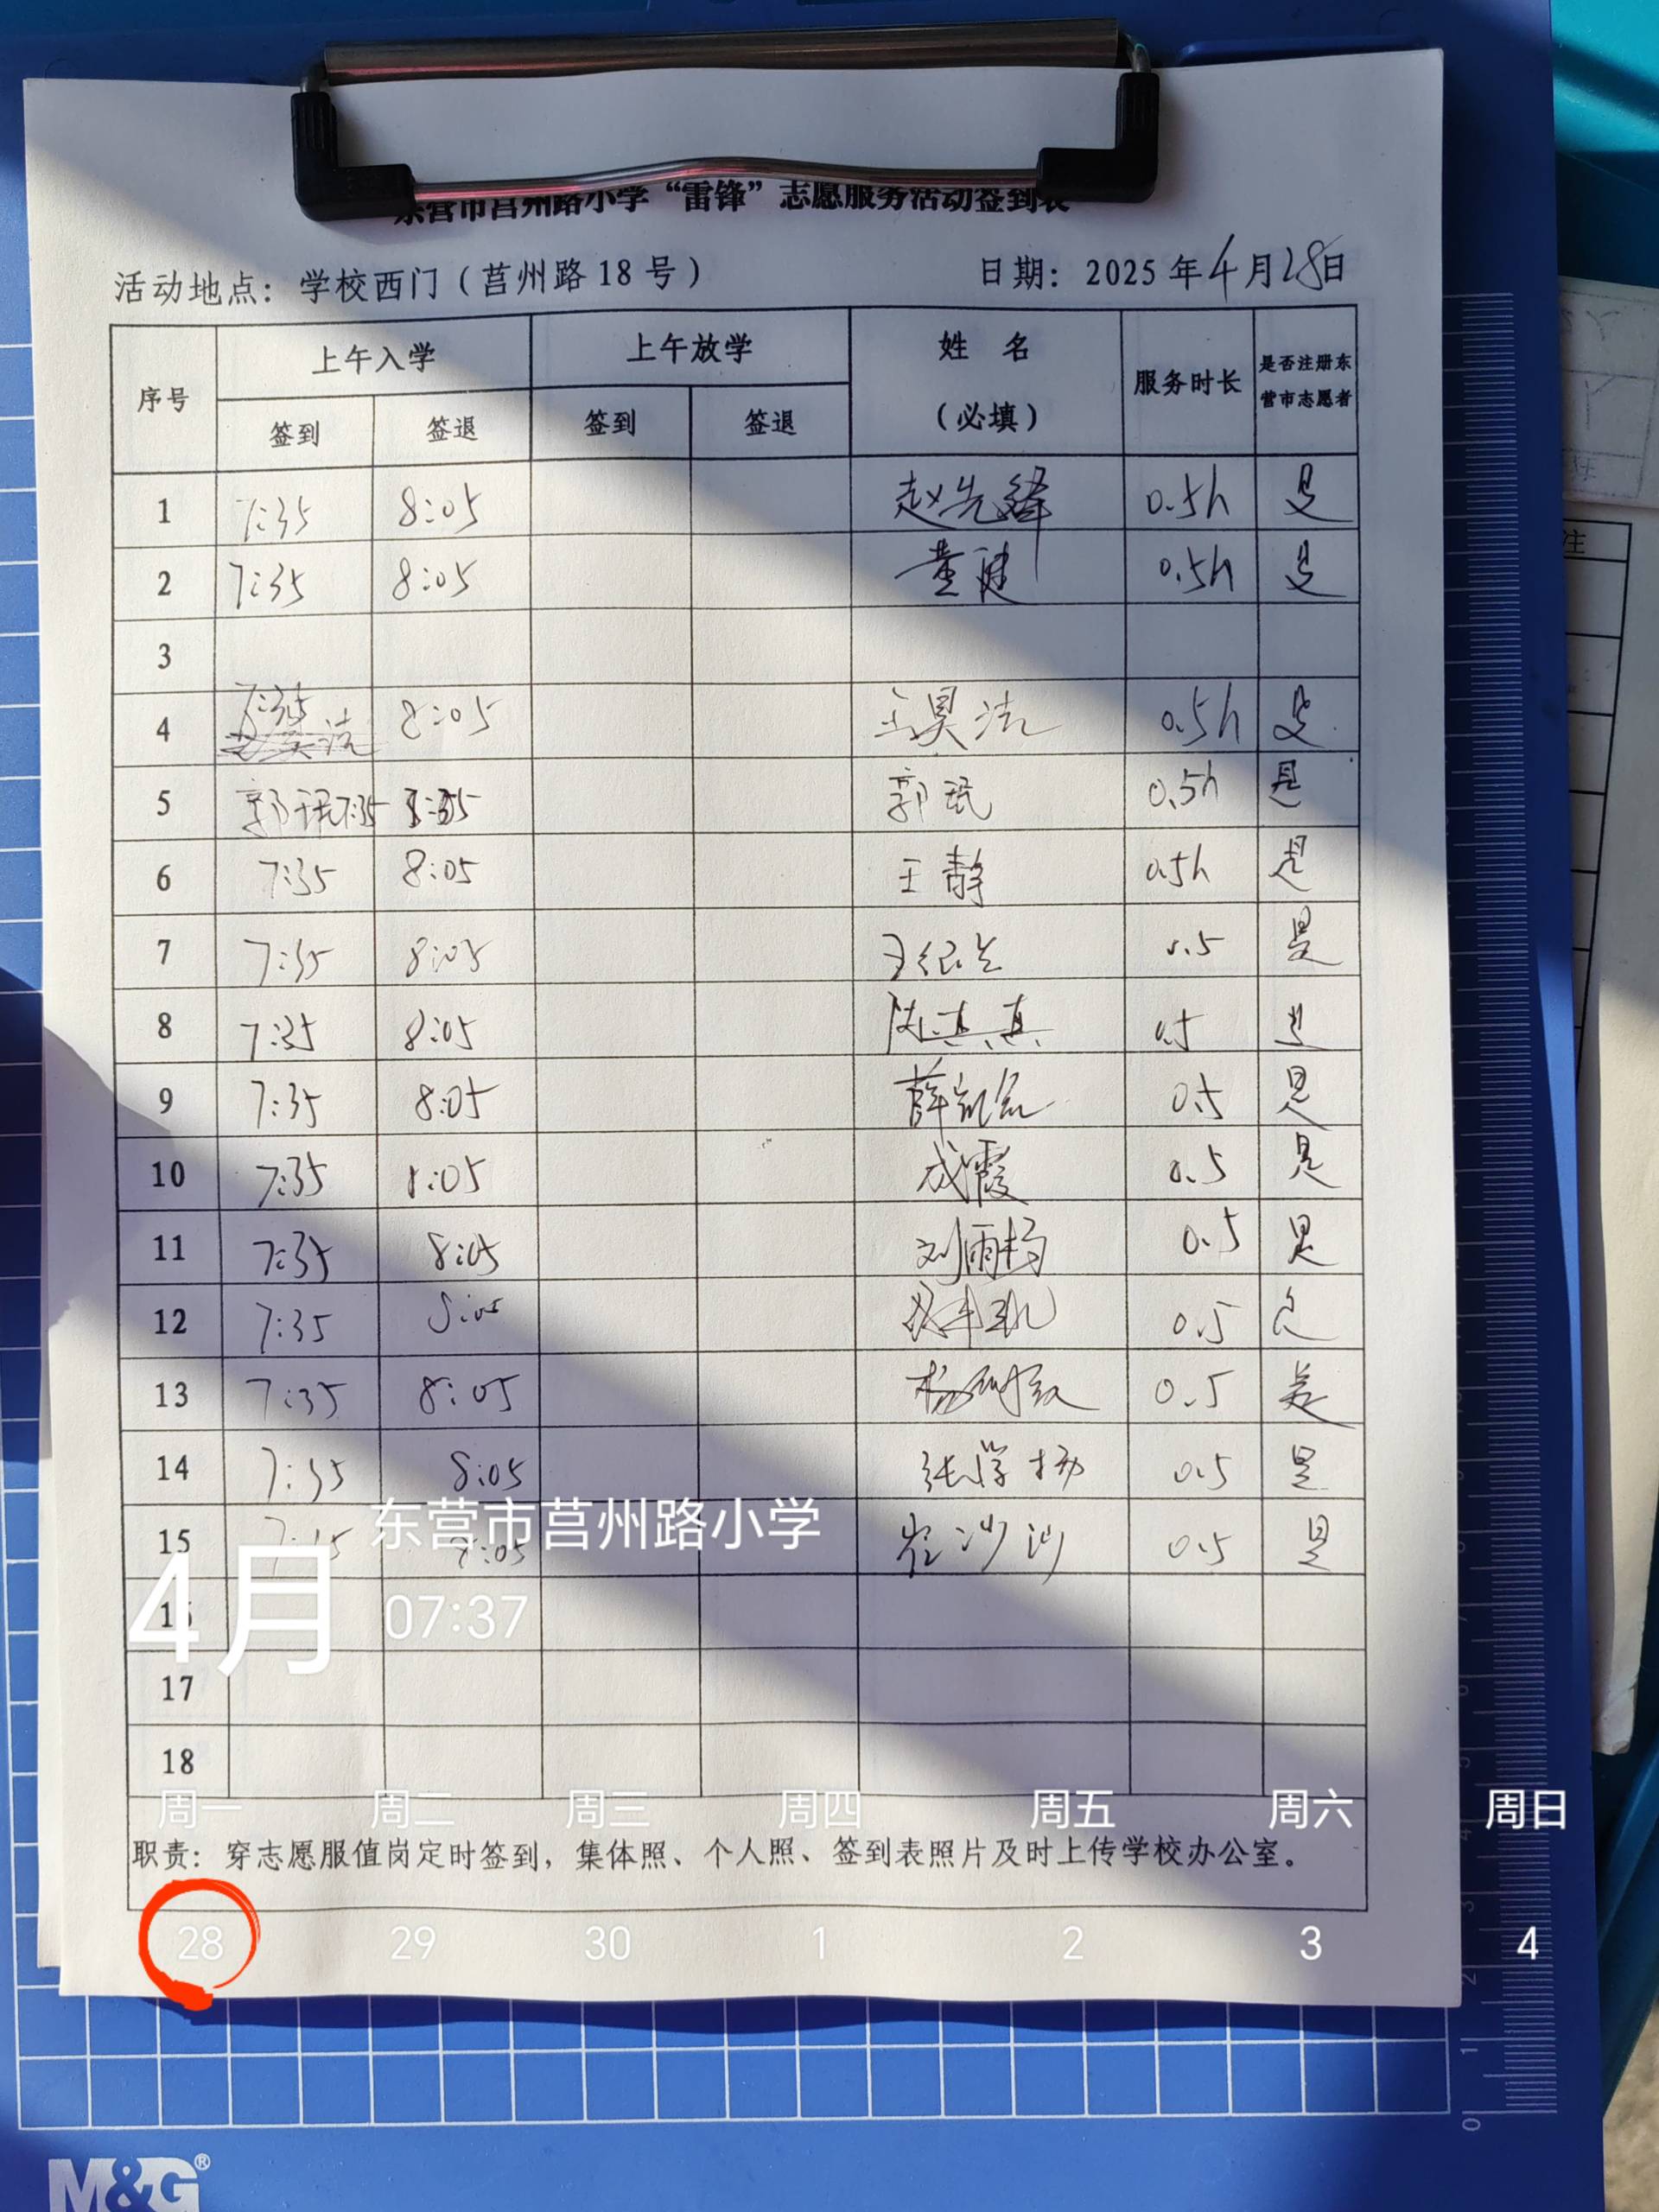 东营市莒州路小学“雷锋”志愿服务活动签到表
活动地点：学校西门（莒州路18号） 日期：2025年4月28日
序号 上午入学 上午放学 姓名（必填） 服务时长 是否注册东营市志愿者
签到 签退 签到 签退
1 7:35 8:05 赵先锋 0.5h 是
2 7:35 8:05 董健 0.5h 是
3
4 7:35 8:05 王昊洁 0.5h 是
5 郭珉 7:35 郭珉 0.5h 是
6 7:35 8:05 王静 0.5h 是
7 7:35 8:05 0.5 是
8 7:35 8:05 陈真真 0.5 是
9 7:35 8:05 0.5 是
10 7:35 8:05 成霞 0.5 是
11 7:35 8:05 刘雨杨 0.5 是
12 7:35 8:05 0.5 是
13 7:35 8:05 0.5 是
14 7:35 8:05 张学杨 0.5 是
15 7:35 8:05 崔沙沙 0.5 是
东营市莒州路小学
4月 07:37
16
17
18
周一 周二 周三 周四 周五 周六 周日
职责：穿志愿服值岗定时签到，集体照、个人照、签到表照片及时上传学校办公室。
28 29 30 1 2 3 4
M&G®